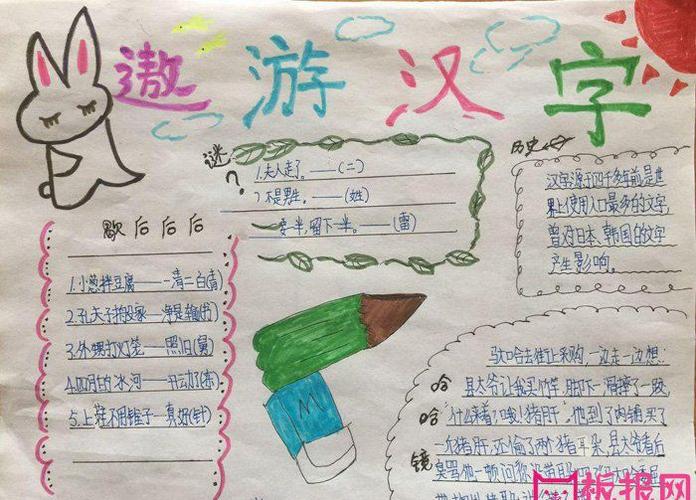 遨游汉字
谜?
1.夫人走了。——(二)
2.不是男生。——(姓)
一要半,留下一半。——(雷)
历史
汉字源于四千多年前是世
界上使用人口最多的文字,
曾对日本、韩国的文字
产生影响。
歇后后后
1.小葱拌豆腐——一清二白(青)
2.孔夫子搬家——净是输(书)
3.外甥打灯笼——照旧(舅)
4.四月的冰河——开动了(冻)
5.上鞋不用锥子——真好(针)
哈哈镜
马大哈去街上采购,一边走一边想:
县太爷让我买竹竿,脚下一滑摔了一跤,
"什么来着?哦!猪肝",他到了肉铺买了
一个猪肝,还偷了两个猪耳朵,县太爷看后
臭骂他一顿问你
M
板报网